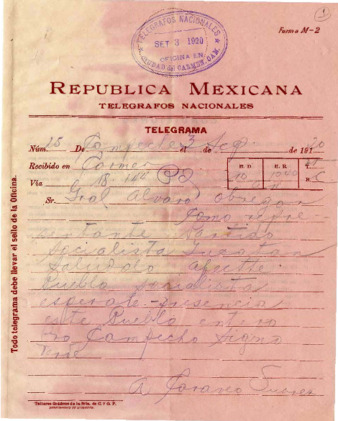 Forma M-2
TELEGRAFOS NACIONALES
SET 3 1920
OFICINA EN
CIUDAD DEL CARMEN CAM.
REPUBLICA MEXICANA
TELEGRAFOS NACIONALES
TELEGRAMA
Núm. 15 De Campeche 3 de Sep. de 1920
Recibido en Carmen
Vía
Sr. Gral Alvaro Obregon
Como repre
sentante Partido
Socialista Yucatan
saludolo afecte
Pueblo
esperale presencia
este Pueblo entero
Campeche
Todo telegrama debe llevar el sello de la Oficina.
Talleres Gráficos de la Sría. de C. y O. P.